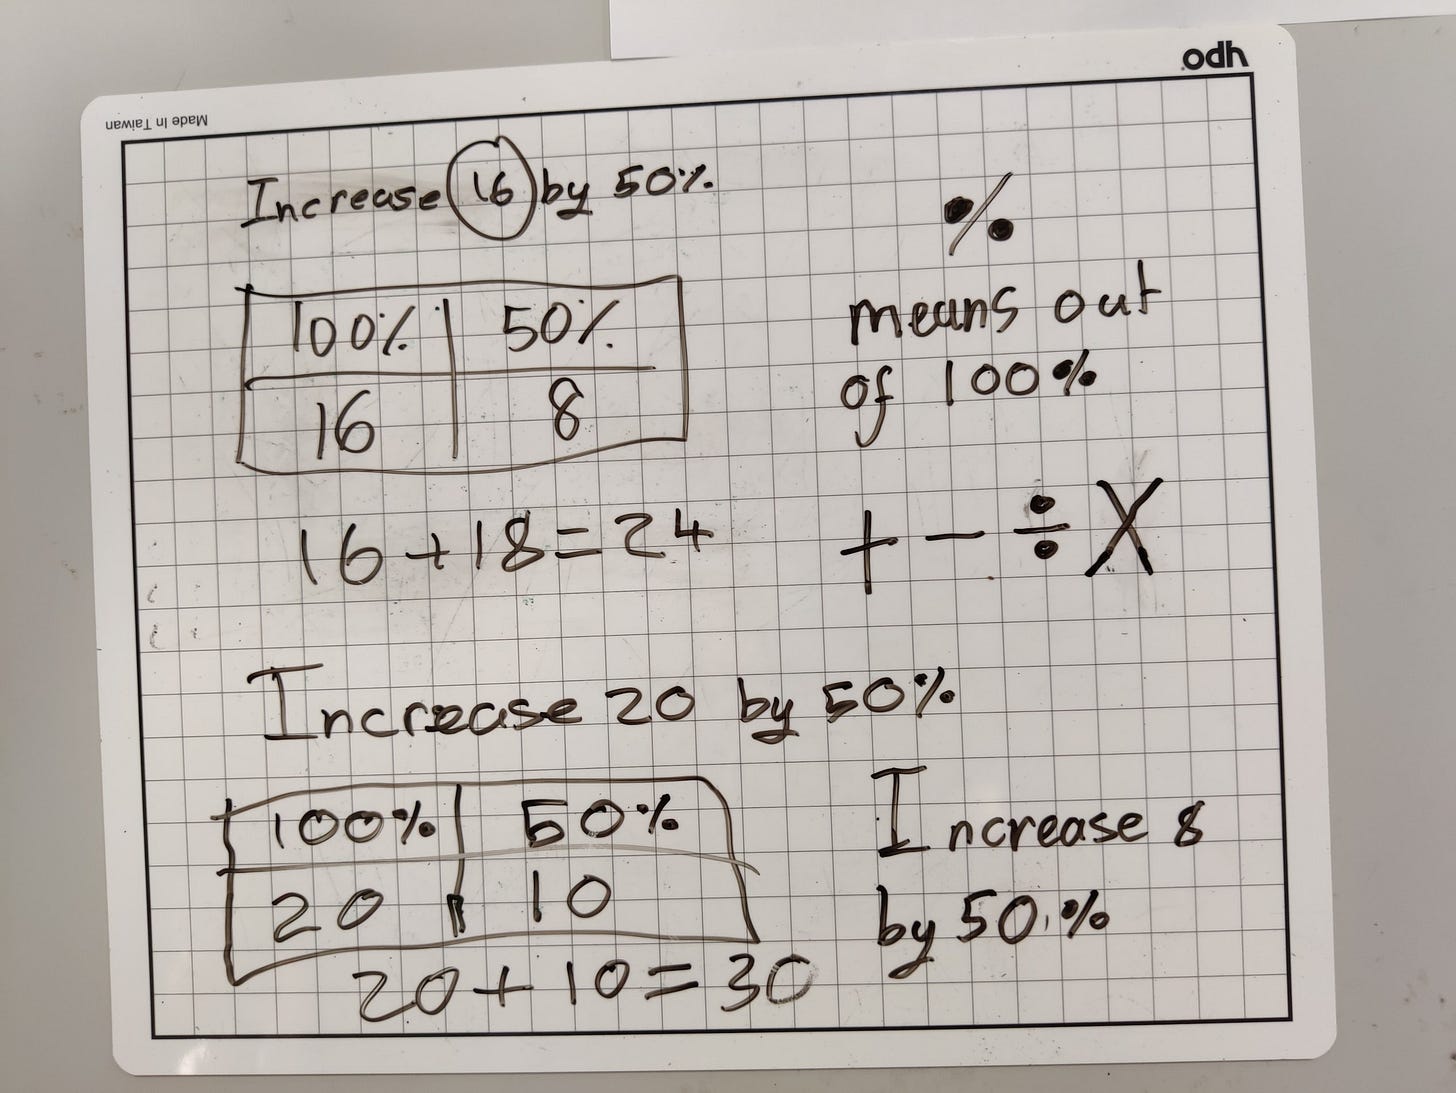 odh
Made In Taiwan
Increase 16 by 50%
100% 50%
16 8
16+18=24
%
means out
of 100%
+ - ÷ X
Increase 20 by 50%
100% 50%
20 10
20+10=30
Increase 8
by 50%